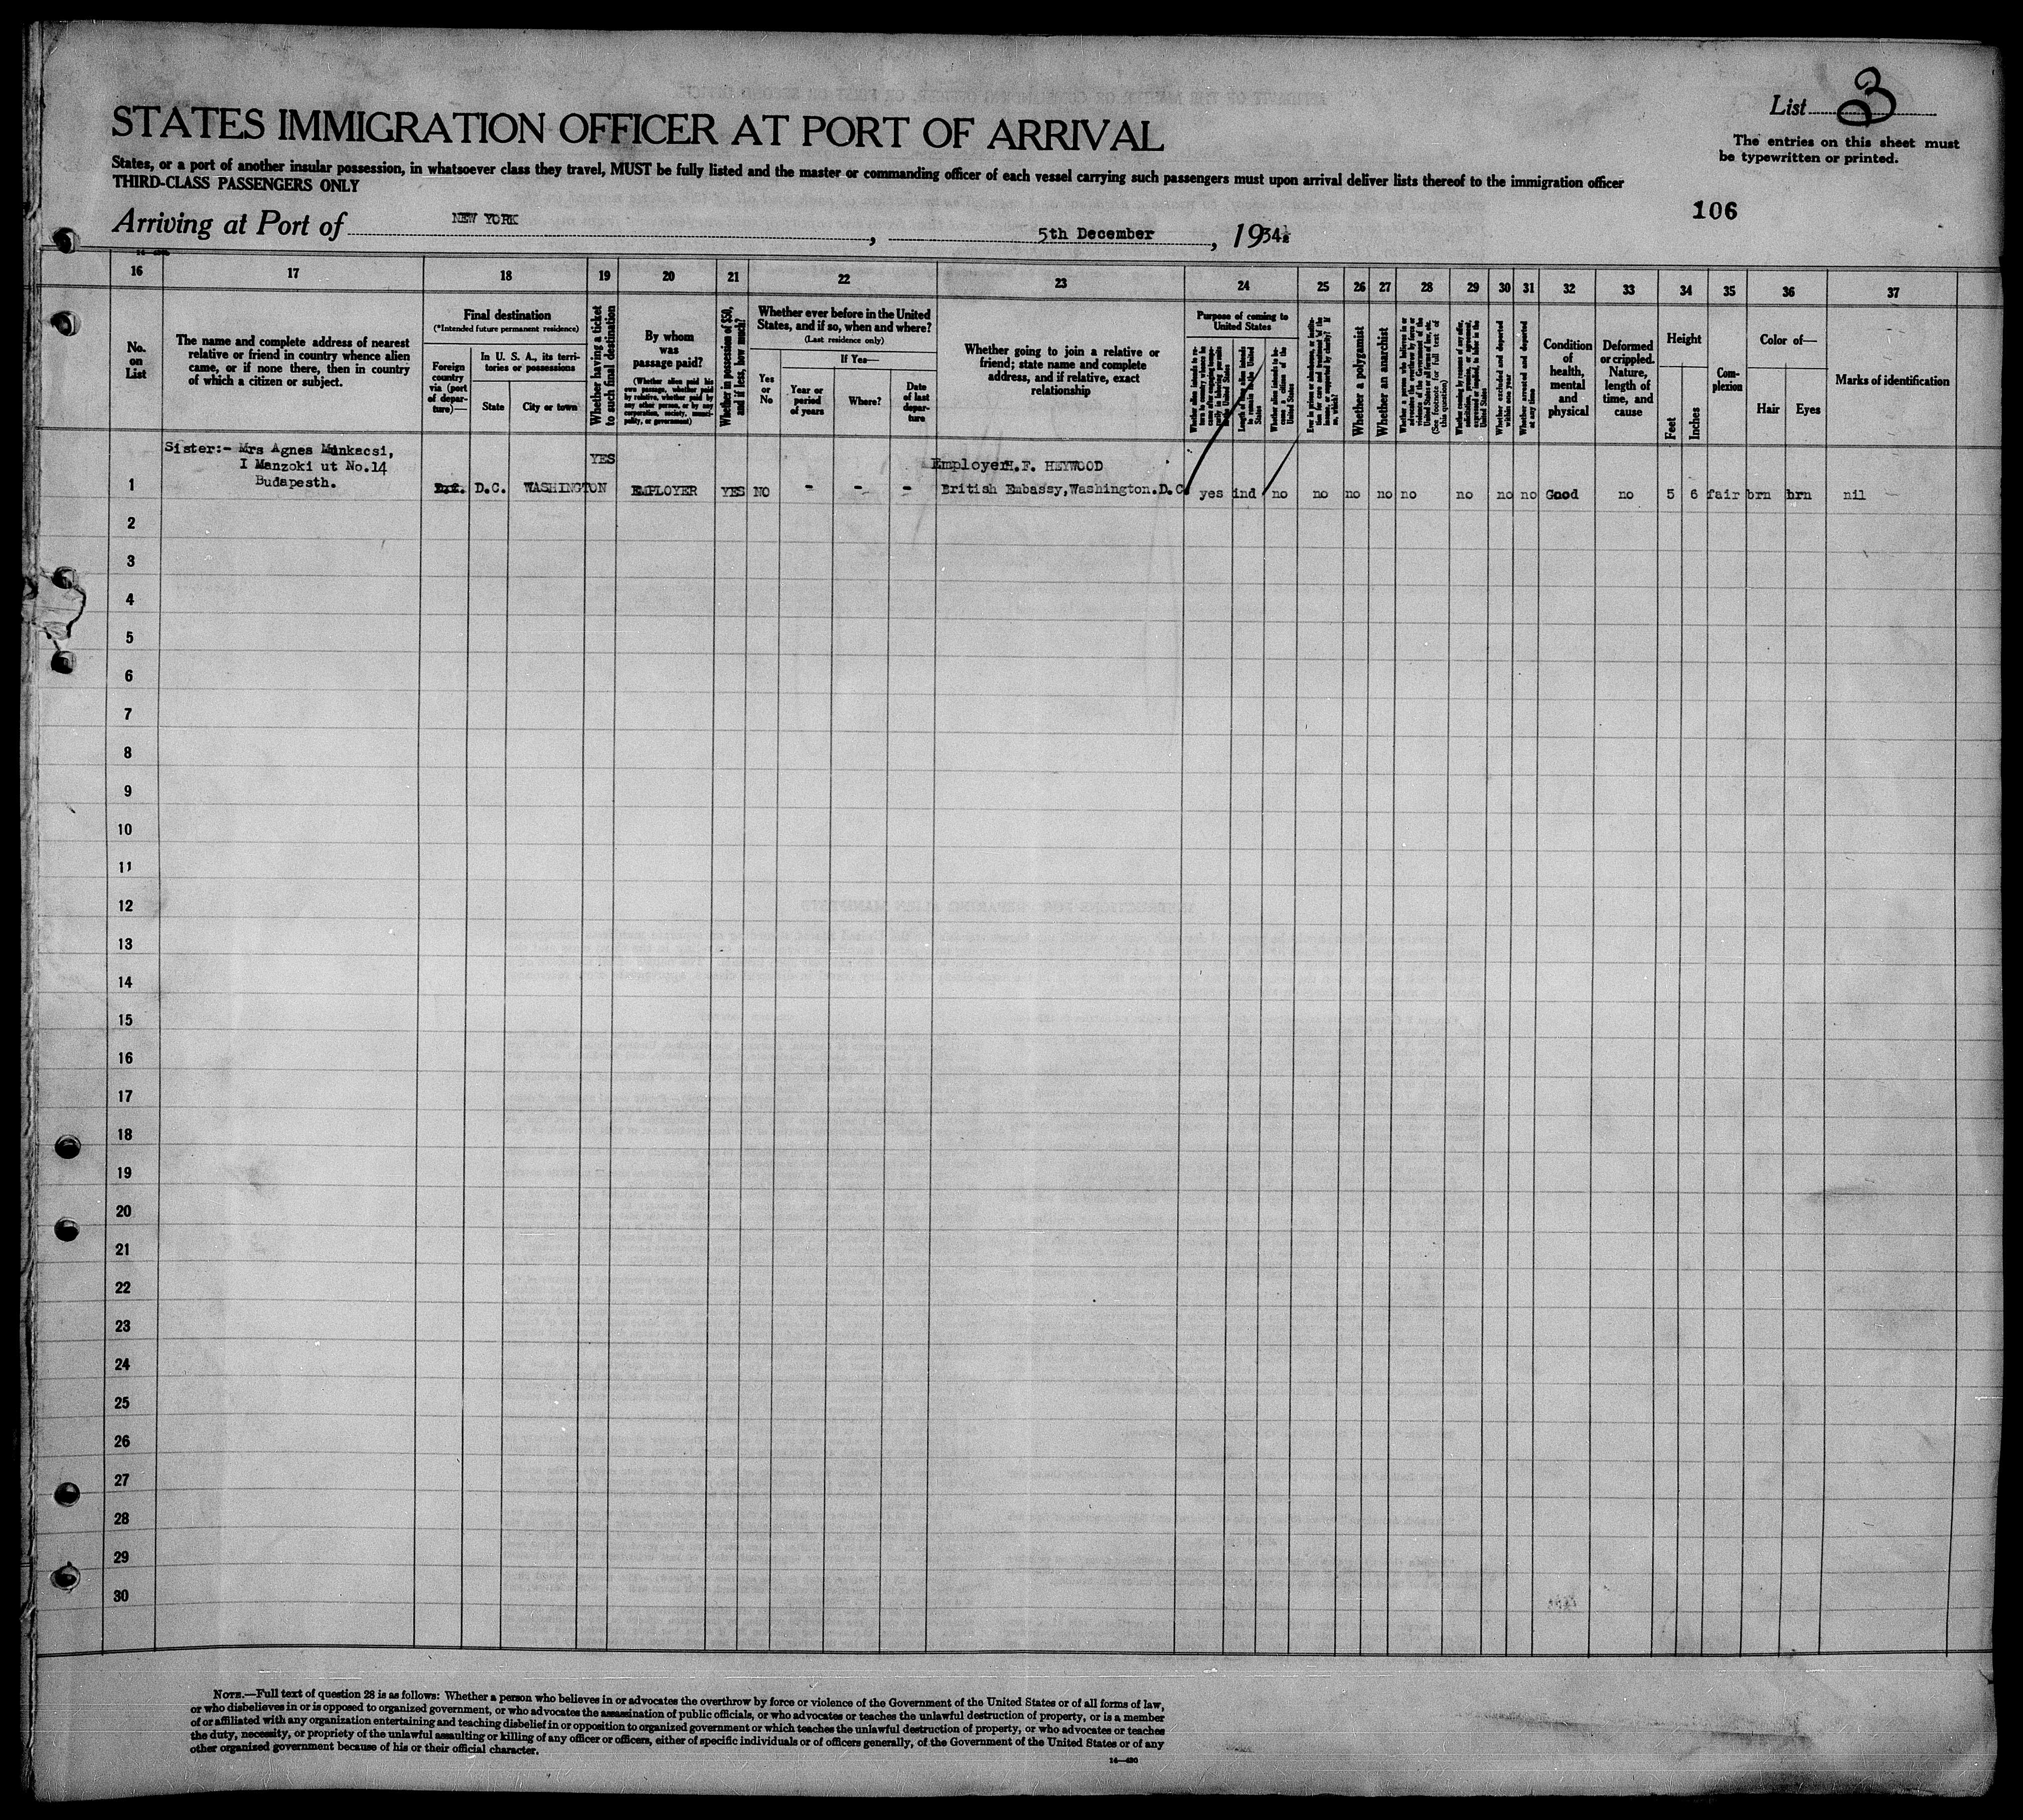 List 3
STATES IMMIGRATION OFFICER AT PORT OF ARRIVAL
The entries on this sheet must
be typewritten or printed.
States, or a port of another insular possession, in whatsoever class they travel, MUST be fully listed and the master or commanding officer of each vessel carrying such passengers must upon arrival deliver lists thereof to the immigration officer
THIRD-CLASS PASSENGERS ONLY
106
Arriving at Port of NEW YORK, 5th December, 1934
16 17 18 19 20 21 22 23 24 25 26 27 28 29 30 31 32 33 34 35 36 37
No.
on
List
The name and complete address of nearest
relative or friend in country whence alien
came, or if none there, then in country
of which a citizen or subject.
Final destination
(*Intended future permanent residence)
Foreign
country
via (port
of depar-
ture)—
In U. S. A., its terri-
tories or possessions
State
City or town
Whether having a ticket
to such final destination
By whom
was
passage paid?
(Whether alien paid his
own passage, whether paid
by relative, whether paid by
any other person, or by any
corporation, society, munici-
pality, or government)
Whether in possession of $50,
and if less, how much?
Whether ever before in the United
States, and if so, when and where?
(Last residence only)
Yes
or
No
If Yes—
Year or
period
of years
Where?
Date
of last
depar-
ture
Whether going to join a relative or
friend; state name and complete
address, and if relative, exact
relationship
Purpose of coming to
United States
Length of time alien intends
to remain in the United
States
Whether alien intends to be-
come a citizen of the
United States
Whether a polygamist
Whether an anarchist
(See footnote for full text of
this question)
Whether excluded and deported
within one year
Whether arrested and deported
at any time
Condition
of
health,
mental
and
physical
Deformed
or crippled.
Nature,
length of
time, and
cause
Height
Feet
Inches
Com-
plexion
Color of—
Hair
Eyes
Marks of identification
Sister:- Mrs Agnes Munkacsi,
I Manzoki ut No.14
Budapesth.
1 D.C. WASHINGTON YES EMPLOYER YES NO - - -
Employer H.F. HEYWOOD
British Embassy, Washington.D.C.
yes ind no no no no no no no no Good no 5 6 fair brn brn nil
2
3
4
5
6
7
8
9
10
11
12
13
14
15
16
17
18
19
20
21
22
23
24
25
26
27
28
29
30
NOTE.—Full text of question 28 is as follows: Whether a person who believes in or advocates the overthrow by force or violence of the Government of the United States or of all forms of law,
or who disbelieves in or is opposed to organized government, or who advocates the assassination of public officials, or who advocates or teaches the unlawful destruction of property, or is a member
of or affiliated with any organization entertaining and teaching disbelief in or opposition to organized government or which teaches the unlawful destruction of property, or who advocates or teaches
the duty, necessity, or propriety of the unlawful assaulting or killing of any officer or officers, either of specific individuals or of officers generally, of the Government of the United States or of any
other organized government because of his or their official character.
14—430